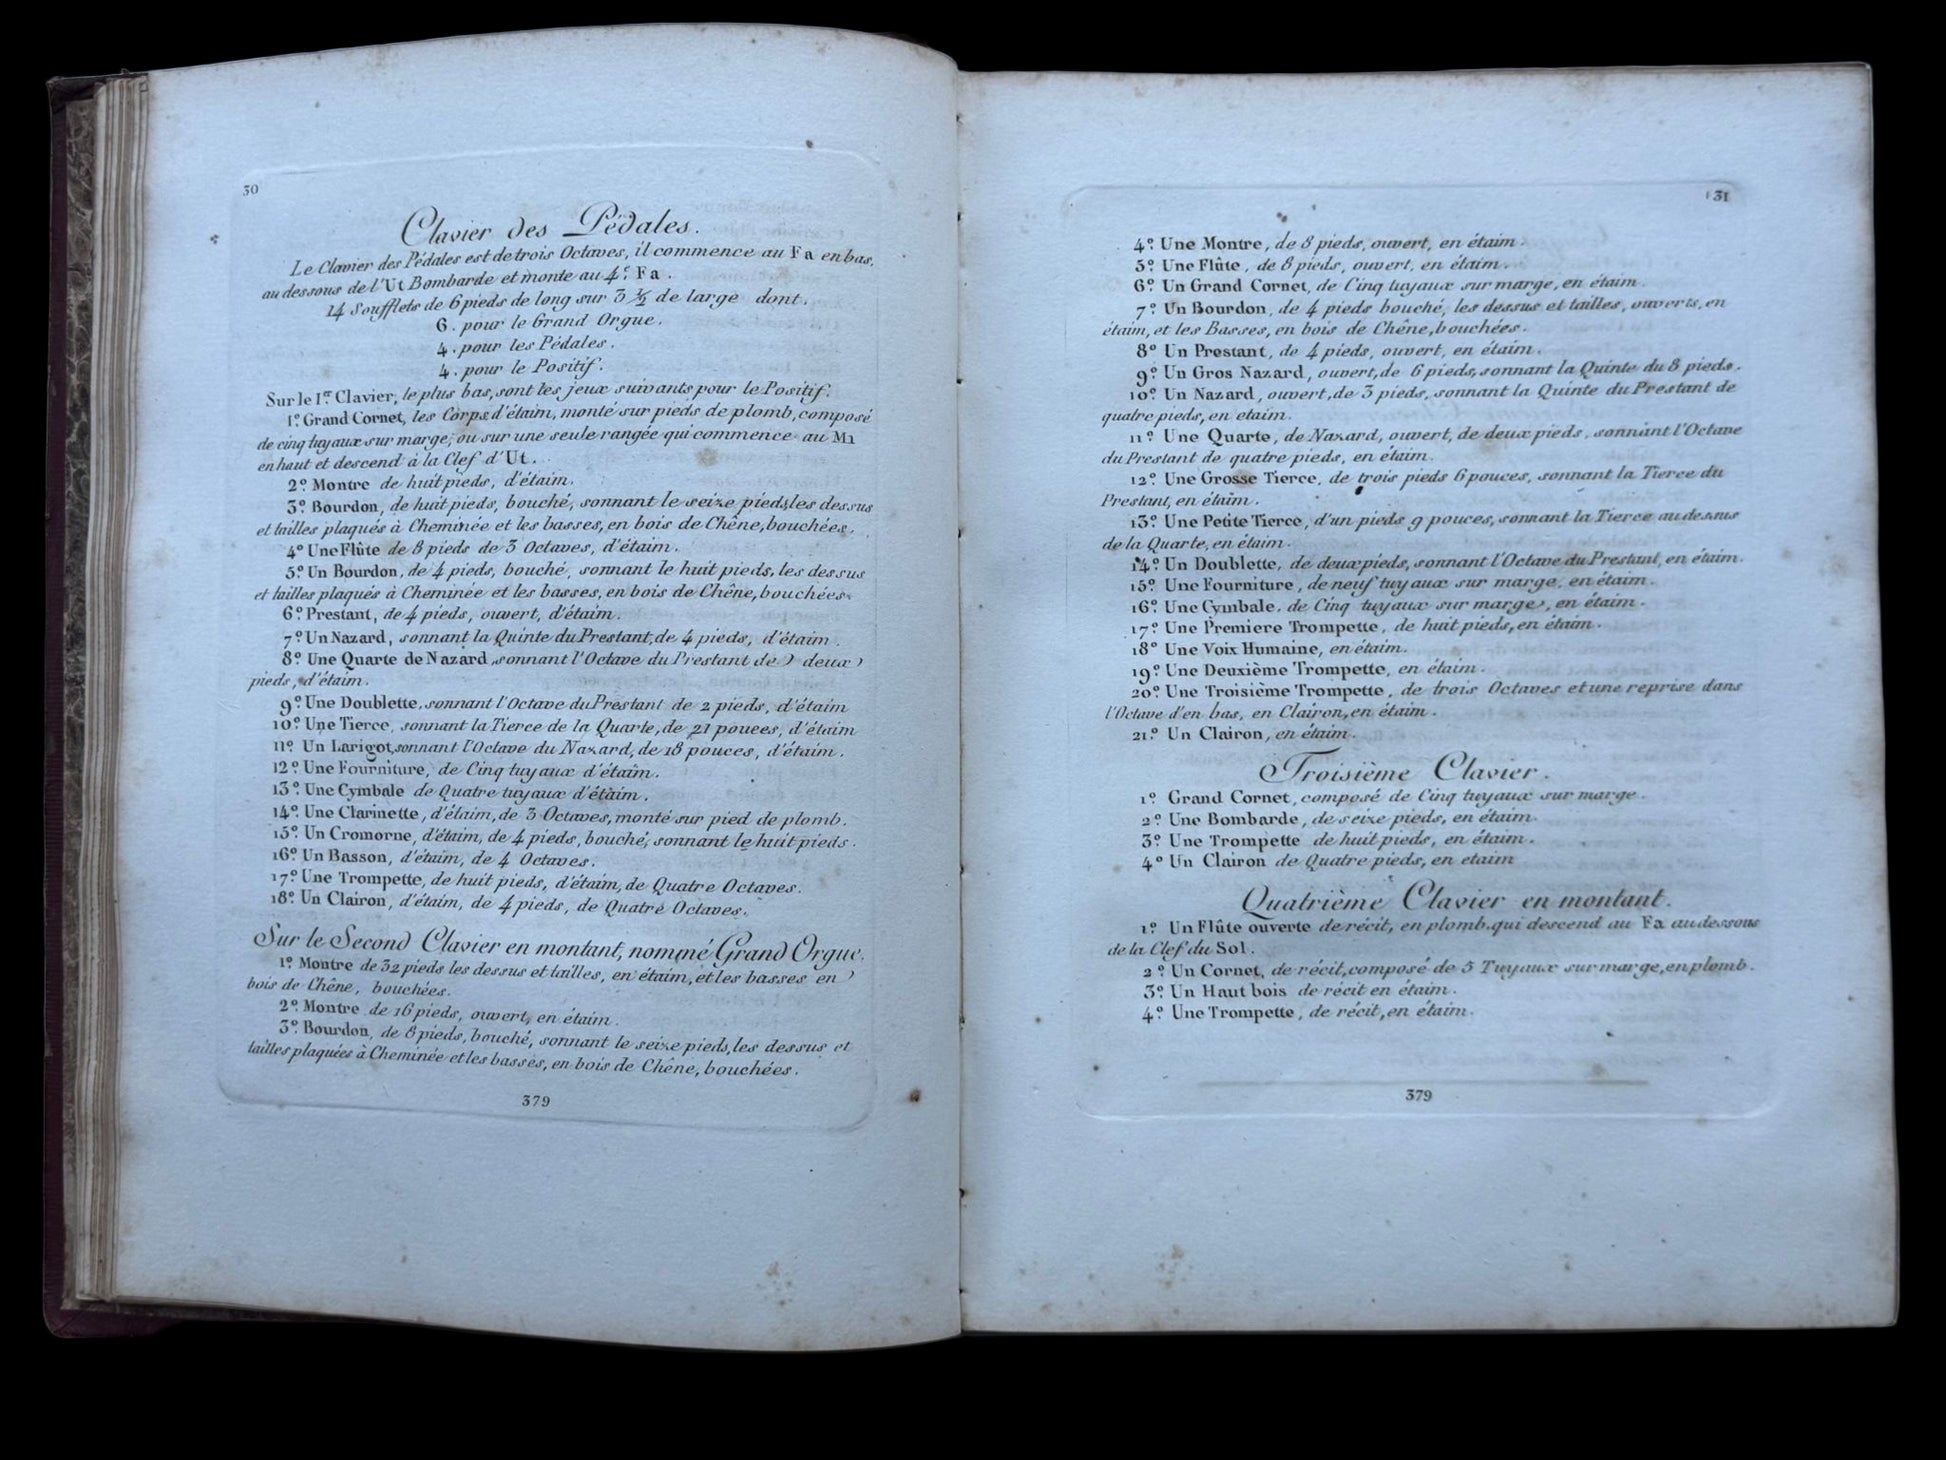 30
Clavier des Pédales.
Le Clavier des Pédales est de trois Octaves, il commence au Fa en bas,
au dessous de l'Ut Bombarde et monte au 4.e Fa.
14 Soufflets de 6 pieds de long sur 3 ½ de large dont.
6. pour le Grand Orgue.
4. pour les Pédales.
4. pour le Positif.
Sur le 1.er Clavier, le plus bas, sont les jeux suivants pour le Positif.
1.o Grand Cornet, les Corps d'étaim, monté sur pieds de plomb, composé
de cinq tuyaux sur marge, ou sur une seule rangée qui commence au Mi
en haut et descend à la Clef d'Ut.
2.o Montre de huit pieds, d'étaim.
3.o Bourdon, de huit pieds, bouché, sonnant le seize pieds, les dessus
et tailles plaqués à Cheminée et les basses, en bois de Chêne, bouchées.
4.o Une Flûte de 8 pieds de 3 Octaves, d'étaim.
5.o Un Bourdon, de 4 pieds, bouché, sonnant le huit pieds, les dessus
et tailles plaqués à Cheminée et les basses, en bois de Chêne, bouchées.
6.o Prestant, de 4 pieds, ouvert, d'étaim.
7.o Un Nazard, sonnant la Quinte du Prestant, de 4 pieds, d'étaim.
8.o Une Quarte de Nazard, sonnant l'Octave du Prestant de deux
pieds, d'étaim.
9.o Une Doublette, sonnant l'Octave du Prestant de 2 pieds, d'étaim
10.o Une Tierce, sonnant la Tierce de la Quarte, de 21 pouces, d'étaim
11.o Un Larigot, sonnant l'Octave du Nazard, de 18 pouces, d'étaim.
12.o Une Fourniture, de Cinq tuyaux d'étaim.
13.o Une Cymbale de Quatre tuyaux d'étaim.
14.o Une Clarinette, d'étaim, de 3 Octaves, monté sur pied de plomb.
15.o Un Cromorne, d'étaim, de 4 pieds, bouché, sonnant le huit pieds.
16.o Un Basson, d'étaim, de 4 Octaves.
17.o Une Trompette, de huit pieds, d'étaim, de Quatre Octaves.
18.o Un Clairon, d'étaim, de 4 pieds, de Quatre Octaves.
Sur le Second Clavier en montant, nommé Grand Orgue.
1.o Montre de 32 pieds les dessus et tailles, en étaim, et les basses en
bois de Chêne, bouchées.
2.o Montre de 16 pieds, ouvert, en étaim.
3.o Bourdon, de 8 pieds, bouché, sonnant le seize pieds, les dessus et
tailles plaquées à Cheminée et les basses, en bois de Chêne, bouchées.
379
31
4.o Une Montre, de 8 pieds, ouvert, en étaim.
5.o Une Flûte, de 8 pieds, ouvert, en étaim.
6.o Un Grand Cornet, de Cinq tuyaux sur marge, en étaim.
7.o Un Bourdon, de 4 pieds bouché, les dessus et tailles, ouverts, en
étaim, et les Basses, en bois de Chêne, bouchées.
8.o Un Prestant, de 4 pieds, ouvert, en étaim.
9.o Un Gros Nazard, ouvert, de 6 pieds, sonnant la Quinte du 8 pieds.
10.o Un Nazard, ouvert, de 3 pieds, sonnant la Quinte du Prestant de
quatre pieds, en etaim.
11.o Une Quarte, de Nazard, ouvert, de deux pieds, sonnant l'Octave
du Prestant de quatre pieds, en étaim.
12.o Une Grosse Tierce, de trois pieds 6 pouces, sonnant la Tierce du
Prestant, en étaim.
13.o Une Petite Tierce, d'un pieds 9 pouces, sonnant la Tierce au dessus
de la Quarte, en étaim.
14.o Un Doublette, de deux pieds, sonnant l'Octave du Prestant, en étaim.
15.o Une Fourniture, de neuf tuyaux sur marge, en étaim.
16.o Une Cymbale, de Cinq tuyaux sur marge, en étaim.
17.o Une Premiere Trompette, de huit pieds, en étaim.
18.o Une Voix Humaine, en étaim.
19.o Une Deuxième Trompette, en étaim.
20.o Une Troisième Trompette, de trois Octaves et une reprise dans
l'Octave d'en bas, en Clairon, en étaim.
21.o Un Clairon, en étaim.
Troisième Clavier.
1.o Grand Cornet, composé de Cinq tuyaux sur marge.
2.o Une Bombarde, de seize pieds, en étaim.
3.o Une Trompette de huit pieds, en étaim.
4.o Un Clairon de Quatre pieds, en etaim
Quatrième Clavier en montant.
1.o Un Flûte ouverte de récit, en plomb, qui descend au Fa au dessous
de la Clef du Sol.
2.o Un Cornet, de récit, composé de 5 Tuyaux sur marge, en plomb.
3.o Un Haut bois de récit en étaim.
4.o Une Trompette, de récit, en étaim.
379